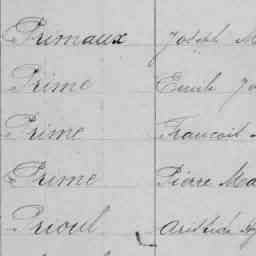 Primaux Joseph M
Prime Emile Jo
Prime Francois
Prime Pierre Ma
Prioul Aristide